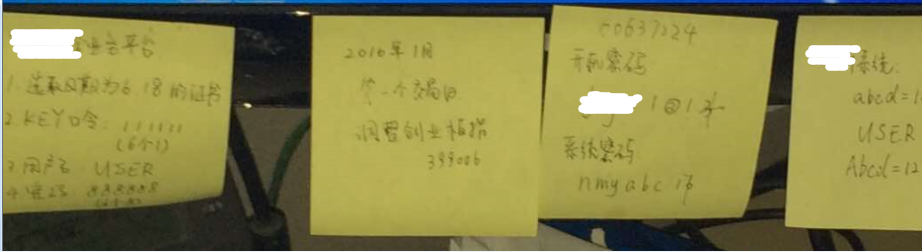 业台平台
1. 选取日期为6.18的证书
2. KEY口令: 111111
(6个1)
3. 用户名: USER
4. 密码: 888888
2010年1月
第一个交易日
调整创业板指
399006
60637224
开机密码
1@1
系统密码
nmyabc
系统:
abcd=1
USER
Abcd=12